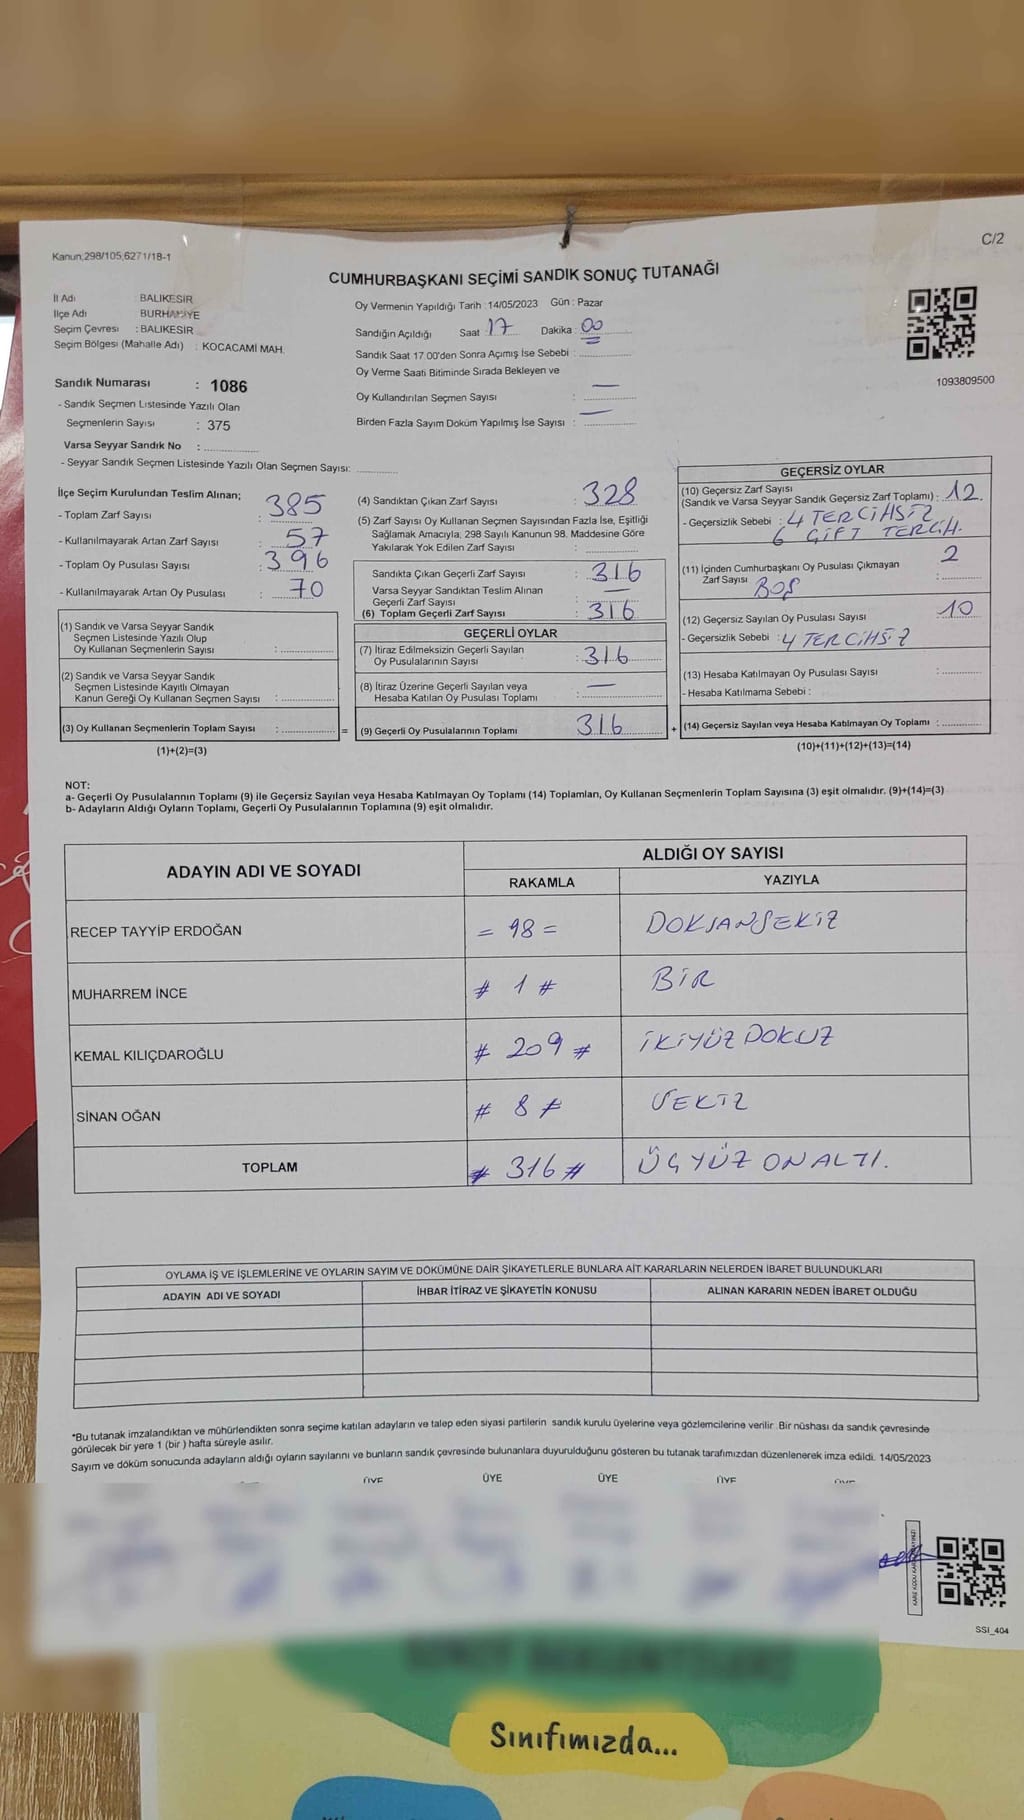 C/2
Kanun;298/105;6271/18-1
CUMHURBAŞKANI SEÇİMİ SANDIK SONUÇ TUTANAĞI
İl Adı : BALIKESİR
İlçe Adı : BURHANİYE
Seçim Çevresi : BALIKESİR
Seçim Bölgesi (Mahalle Adı) : KOCACAMİ MAH.
Sandık Numarası : 1086
- Sandık Seçmen Listesinde Yazılı Olan
Seçmenlerin Sayısı : 375
Varsa Seyyar Sandık No :
- Seyyar Sandık Seçmen Listesinde Yazılı Olan Seçmen Sayısı:
Oy Vermenin Yapıldığı Tarih :14/05/2023 Gün : Pazar
Sandığın Açıldığı Saat : 17 Dakika : 00
Sandık Saat 17.00'den Sonra Açımış İse Sebebi :
Oy Verme Saati Bitiminde Sırada Bekleyen ve
Oy Kullandırılan Seçmen Sayısı : —
Birden Fazla Sayım Döküm Yapılmış İse Sayısı : —
1093809500
İlçe Seçim Kurulundan Teslim Alınan;
- Toplam Zarf Sayısı : 385
- Kullanılmayarak Artan Zarf Sayısı : 57
- Toplam Oy Pusulası Sayısı : 396
- Kullanılmayarak Artan Oy Pusulası : 70
(1) Sandık ve Varsa Seyyar Sandık
Seçmen Listesinde Yazılı Olup
Oy Kullanan Seçmenlerin Sayısı :
(2) Sandık ve Varsa Seyyar Sandık
Seçmen Listesinde Kayıtlı Olmayan
Kanun Gereği Oy Kullanan Seçmen Sayısı :
(3) Oy Kullanan Seçmenlerin Toplam Sayısı : =
(1)+(2)=(3)
(4) Sandıktan Çıkan Zarf Sayısı : 328
(5) Zarf Sayısı Oy Kullanan Seçmen Sayısından Fazla İse, Eşitliği
Sağlamak Amacıyla, 298 Sayılı Kanunun 98. Maddesine Göre
Yakılarak Yok Edilen Zarf Sayısı :
Sandıkta Çıkan Geçerli Zarf Sayısı : 316
Varsa Seyyar Sandıktan Teslim Alınan
Geçerli Zarf Sayısı : —
(6) Toplam Geçerli Zarf Sayısı : 316
GEÇERLİ OYLAR
(7) İtiraz Edilmeksizin Geçerli Sayılan
Oy Pusulalarının Sayısı : 316
(8) İtiraz Üzerine Geçerli Sayılan veya
Hesaba Katılan Oy Pusulası Toplamı : —
(9) Geçerli Oy Pusulalarının Toplamı 316 +
GEÇERSİZ OYLAR
(10) Geçersiz Zarf Sayısı
(Sandık ve Varsa Seyyar Sandık Geçersiz Zarf Toplamı) : 12.
- Geçersizlik Sebebi : 4 TERCİHSİZ
6 ÇİFT TERCİH.
(11) İçinden Cumhurbaşkanı Oy Pusulası Çıkmayan 2
Zarf Sayısı : BOŞ
(12) Geçersiz Sayılan Oy Pusulası Sayısı : 10
- Geçersizlik Sebebi : 4 TERCİHSİZ
(13) Hesaba Katılmayan Oy Pusulası Sayısı :
- Hesaba Katılmama Sebebi :
(14) Geçersiz Sayılan veya Hesaba Katılmayan Oy Toplamı :
(10)+(11)+(12)+(13)=(14)
NOT:
a- Geçerli Oy Pusulalarının Toplamı (9) ile Geçersiz Sayılan veya Hesaba Katılmayan Oy Toplamı (14) Toplamları, Oy Kullanan Seçmenlerin Toplam Sayısına (3) eşit olmalıdır. (9)+(14)=(3)
b- Adayların Aldığı Oyların Toplamı, Geçerli Oy Pusulalarının Toplamına (9) eşit olmalıdır.
ADAYIN ADI VE SOYADI ALDIĞI OY SAYISI
RAKAMLA YAZIYLA
RECEP TAYYİP ERDOĞAN = 98 = DOKSANSEKİZ
MUHARREM İNCE # 1 # BİR
KEMAL KILIÇDAROĞLU # 209 # İKİYÜZDOKUZ
SİNAN OĞAN # 8 # SEKİZ
TOPLAM # 316 # ÜÇYÜZONALTI.
OYLAMA İŞ VE İŞLEMLERİNE VE OYLARIN SAYIM VE DÖKÜMÜNE DAİR ŞİKAYETLERLE BUNLARA AİT KARARLARIN NELERDEN İBARET BULUNDUKLARI
ADAYIN ADI VE SOYADI İHBAR İTİRAZ VE ŞİKAYETİN KONUSU ALINAN KARARIN NEDEN İBARET OLDUĞU
*Bu tutanak imzalandıktan ve mühürlendikten sonra seçime katılan adayların ve talep eden siyasi partilerin sandık kurulu üyelerine veya gözlemcilerine verilir. Bir nüshası da sandık çevresinde
görülecek bir yere 1 (bir ) hafta süreyle asılır.
Sayım ve döküm sonucunda adayların aldığı oyların sayılarını ve bunların sandık çevresinde bulunanlara duyurulduğunu gösteren bu tutanak tarafımızdan düzenlenerek imza edildi. 14/05/2023
ÜYE ÜYE ÜYE ÜYE
SSI_404
Sınıfımızda...